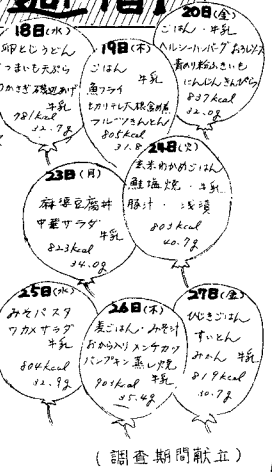 18日(水)
卵とじうどん
さつまいも天ぷら
わかさぎ磯辺あげ
牛乳
781kcal
32.7g
19日(木)
ごはん 牛乳
魚フライ
フルーツきんとん
805kcal
31.8
20日(金)
ごはん・牛乳
ヘルシーハンバーグおろしソース
青のり粉ふきいも
にんじんきんぴら
837kcal
32.2g
23日(月)
麻婆豆腐丼
中華サラダ
牛乳
823kcal
34.0g
24日(火)
玄米わかめごはん
鮭塩焼・牛乳
豚汁・浅漬
803kcal
40.7g
25日(水)
みそパスタ
ワカメサラダ
牛乳
804kcal
32.9g
26日(木)
麦ごはん・みそ汁
おから入りメンチカツ
パンプキン蒸し焼
牛乳
903kcal
35.4g
27日(金)
ひじきごはん
すいとん
みかん 牛乳
819kcal
30.7g
(調査期間献立)